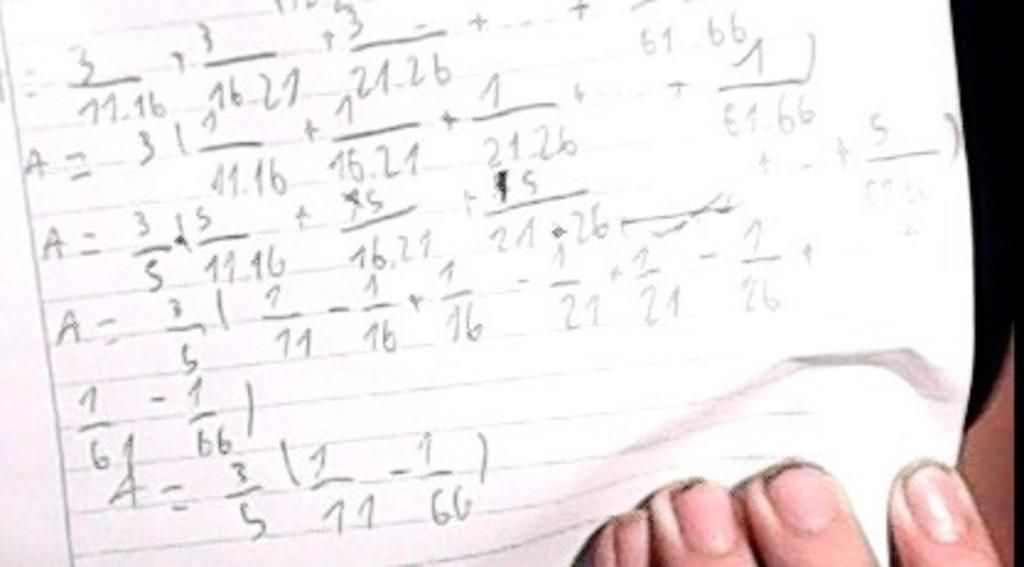 = 3/11.16 + 3/16.21 + 3/21.26 + ... + /61.66
A = 3 ( 1/11.16 + 1/16.21 + 1/21.26 + ... + 1/61.66 )
A = 3/5 ( 5/11.16 + 5/16.21 + 5/21.26 + ... + 5/ )
A = 3/5 ( 1/11 - 1/16 + 1/16 - 1/21 + 1/21 - 1/26 +
1/61 - 1/66 )
A = 3/5 ( 1/11 - 1/66 )